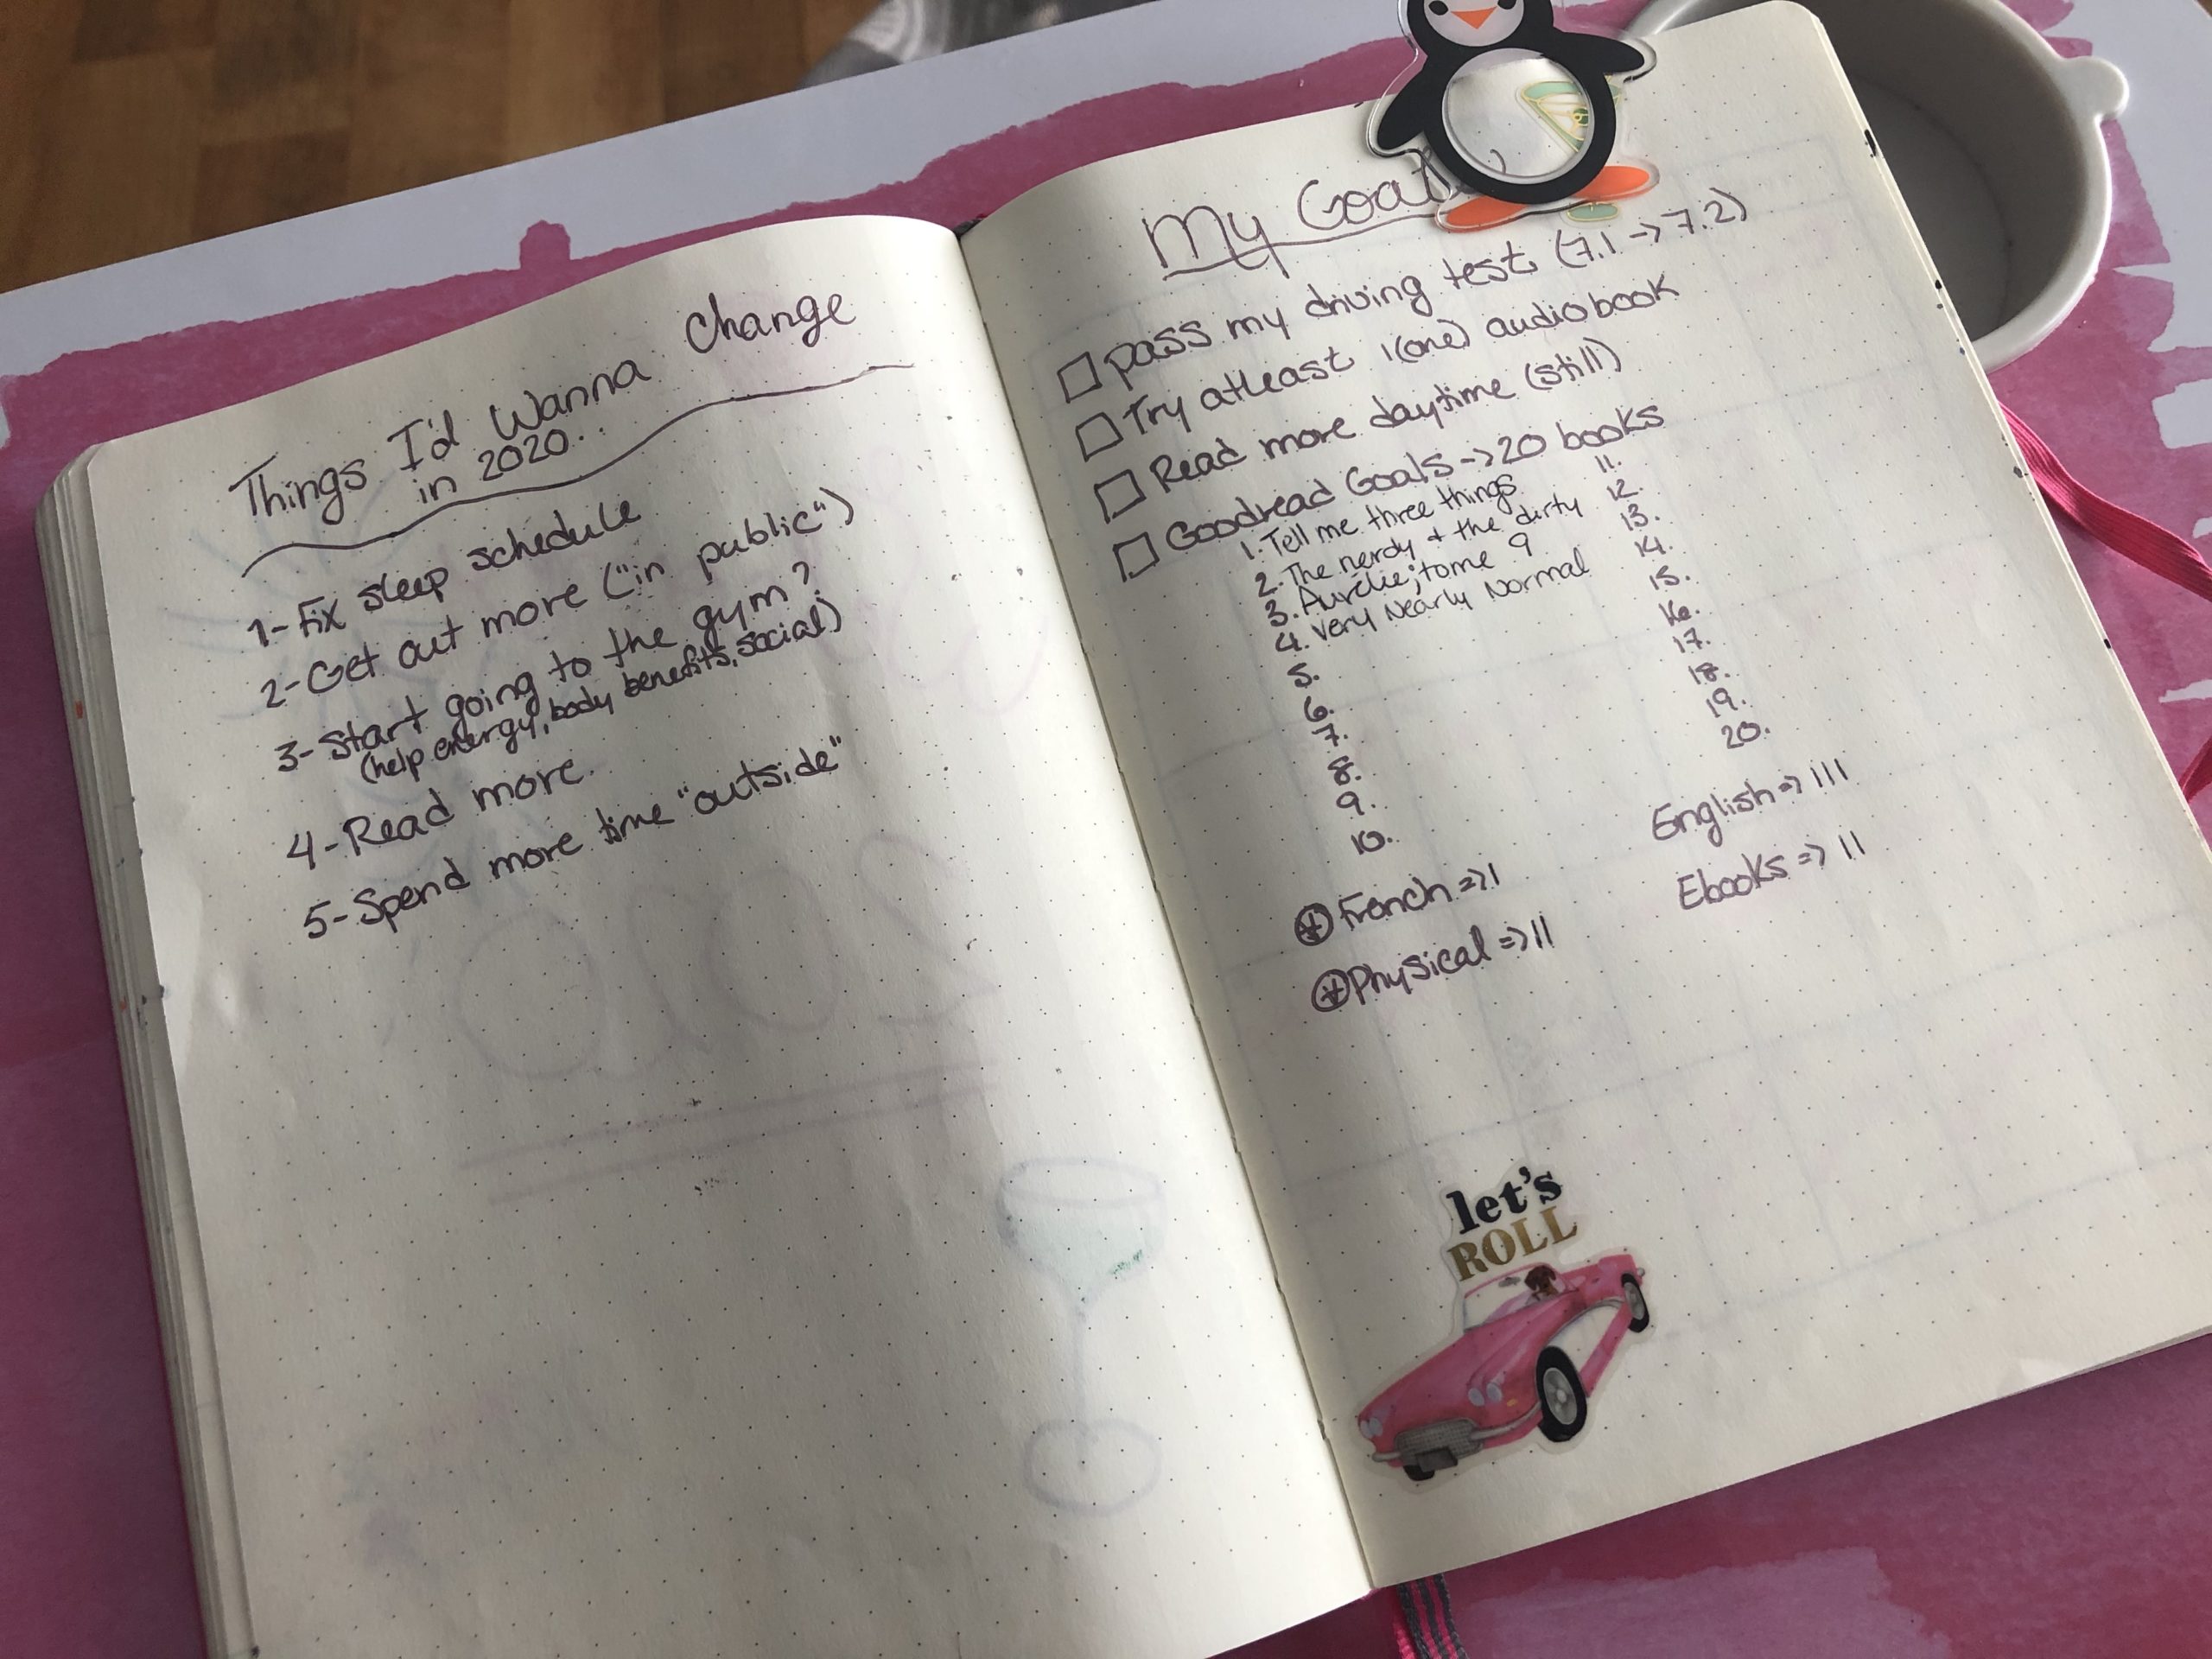 Things I'd Wanna Change
in 2020..
1- Fix sleep schedule
2- Get out more ("in public")
3- Start going to the gym?
(help energy, body benefits, social)
4- Read more.
5- Spend more time "outside"
My Goal
pass my driving test (7.1 -> 7.2)
Try atleast 1(one) audiobook
Read more daytime (still)
Goodread Goals -> 20 books
1. Tell me three things
2. The nerdy + the dirty
3. Aurélie; tome 9
4. Very Nearly Normal
5.
6.
7.
8.
9.
10.
11.
12.
13.
14.
15.
16.
17.
18.
19.
20.
French => I
English => III
Physical => II
Ebooks => II
let's
ROLL